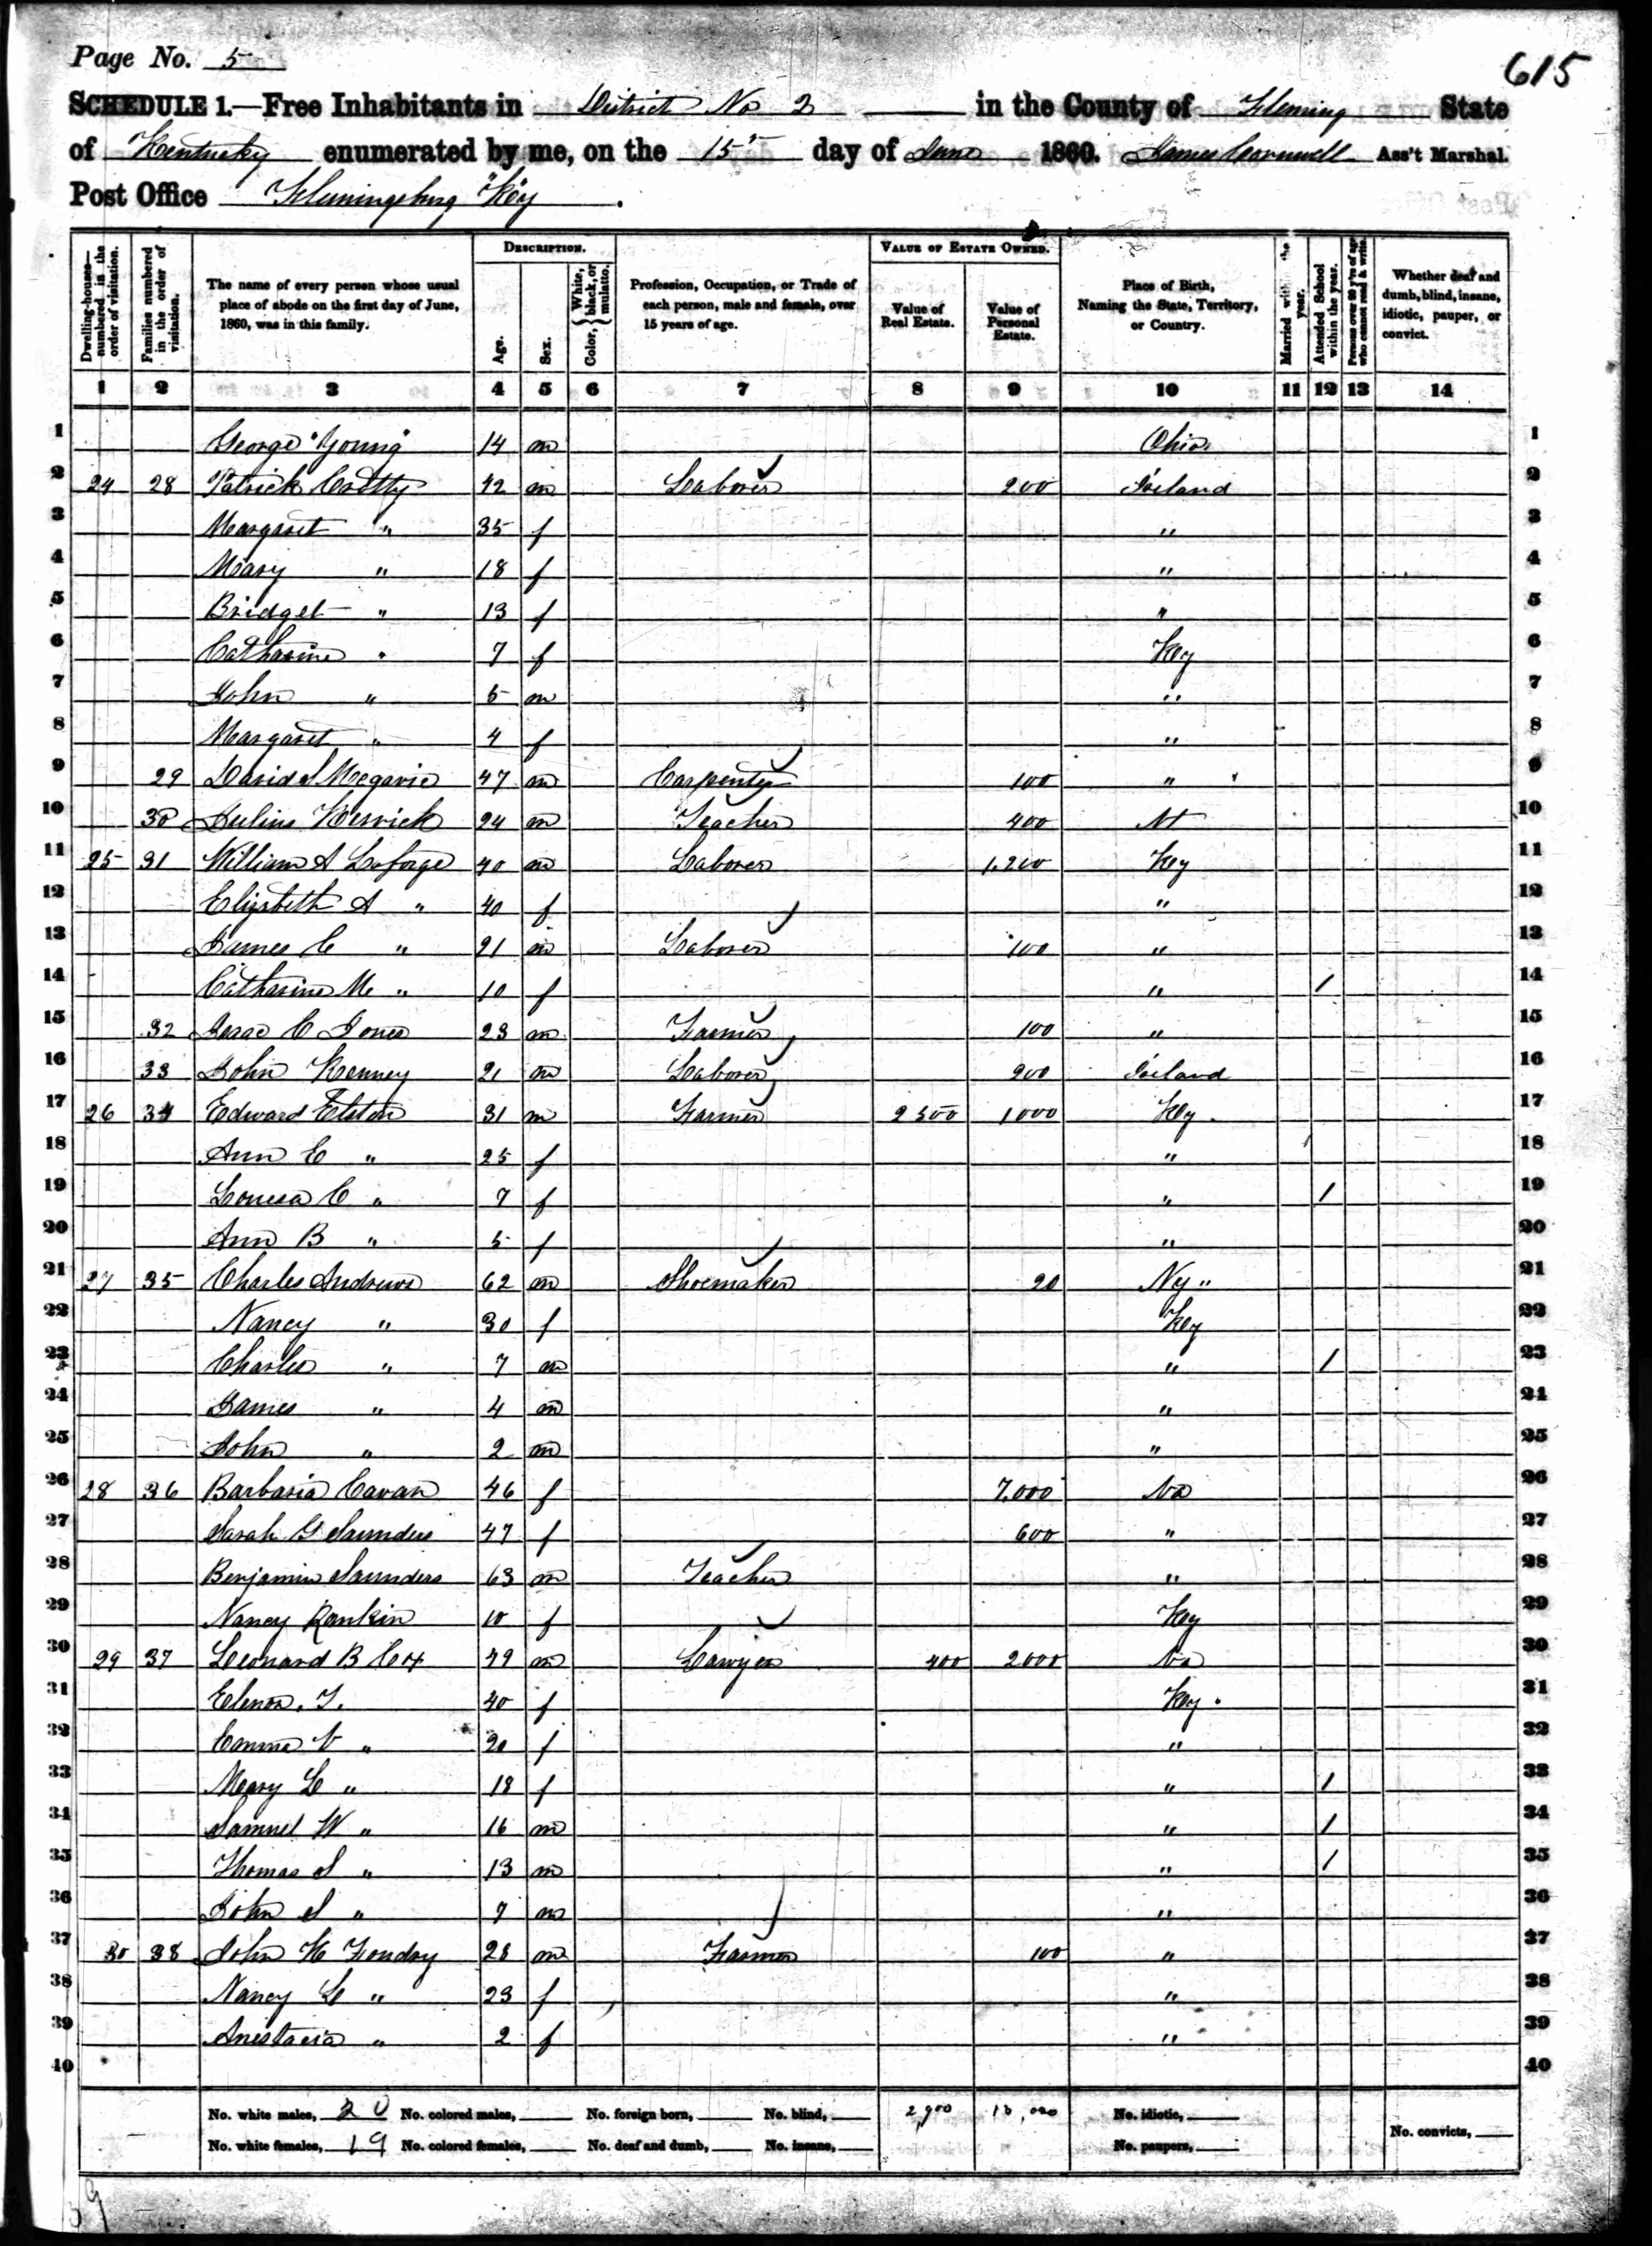 Page No. 5
615
SCHEDULE 1.—Free Inhabitants in District No 2 in the County of Fleming State
of Kentucky enumerated by me, on the 15" day of June 1860. James Cornwell Ass't Marshal.
Post Office Flemingsburg "Ky"
DESCRIPTION. VALUE OF ESTATE OWNED.
Dwelling-houses—numbered in the order of visitation. Families numbered in the order of visitation. The name of every person whose usual place of abode on the first day of June, 1860, was in this family. Age. Sex. Color, {White, black, or mulatto. Profession, Occupation, or Trade of each person, male and female, over 15 years of age. Value of Real Estate. Value of Personal Estate. Place of Birth, Naming the State, Territory, or Country. Married within the year. Attended School within the year. Persons over 20 y'rs of age who cannot read & write. Whether deaf and dumb, blind, insane, idiotic, pauper, or convict.
1 2 3 4 5 6 7 8 9 10 11 12 13 14
1 George "Young" 14 m Ohio 1
2 24 28 Patrick Crotty 42 m Laborer 200 Ireland 2
3 Margaret " 35 f " 3
4 Mary " 18 f " 4
5 Bridget " 13 f " 5
6 Catharine " 7 f Ky 6
7 John " 5 m " 7
8 Margaret " 4 f " 8
9 29 David S Megavic 47 m Carpenter 100 " 9
10 30 Julius Herrick 24 m Teacher 400 Vt 10
11 25 31 William A Laforge 40 m Laborer 1,200 Ky 11
12 Elizabeth A " 40 f " 12
13 James C " 21 m Laborer 100 " 13
14 Catharine M " 10 f " / 14
15 32 Isaac C Jones 23 m Farmer 100 " 15
16 33 John Kenney 21 m Laborer 200 Ireland 16
17 26 34 Edward Elston 31 m Farmer 2500 1000 Ky 17
18 Ann E " 25 f " 18
19 Louesa C " 7 f " / 19
20 Ann B " 5 f " 20
21 27 35 Charles Andrews 62 m Shoemaker 20 Ny" 21
22 Nancy " 30 f Ky 22
23 Charles " 7 m " / 23
24 James " 4 m " 24
25 John " 2 m " 25
26 28 36 Barbaria Cavan 46 f 7,000 Va 26
27 Sarah G Saunders 47 f 600 " 27
28 Benjamin Saunders 63 m Teacher " 28
29 Nancy Rankin 10 f Ky 29
30 29 37 Leonard B Cox 49 m Lawyer 400 2000 Va 30
31 Elenor. T. 40 f Ky 31
32 Emma V " 20 f " 32
33 Mary L " 18 f " / 33
34 Samuel W " 16 m " / 34
35 Thomas S " 13 m " / 35
36 John S " 7 m " 36
37 30 38 John H Foudry 28 m Farmer 100 " 37
38 Nancy L " 23 f " 38
39 Anestacia " 2 f " 39
40 40
No. white males, 20 No. colored males, No. foreign born, No. blind, 2,900 13,020 No. idiotic,
No. white females, 19 No. colored females, No. deaf and dumb, No. insane, No. paupers, No. convicts,